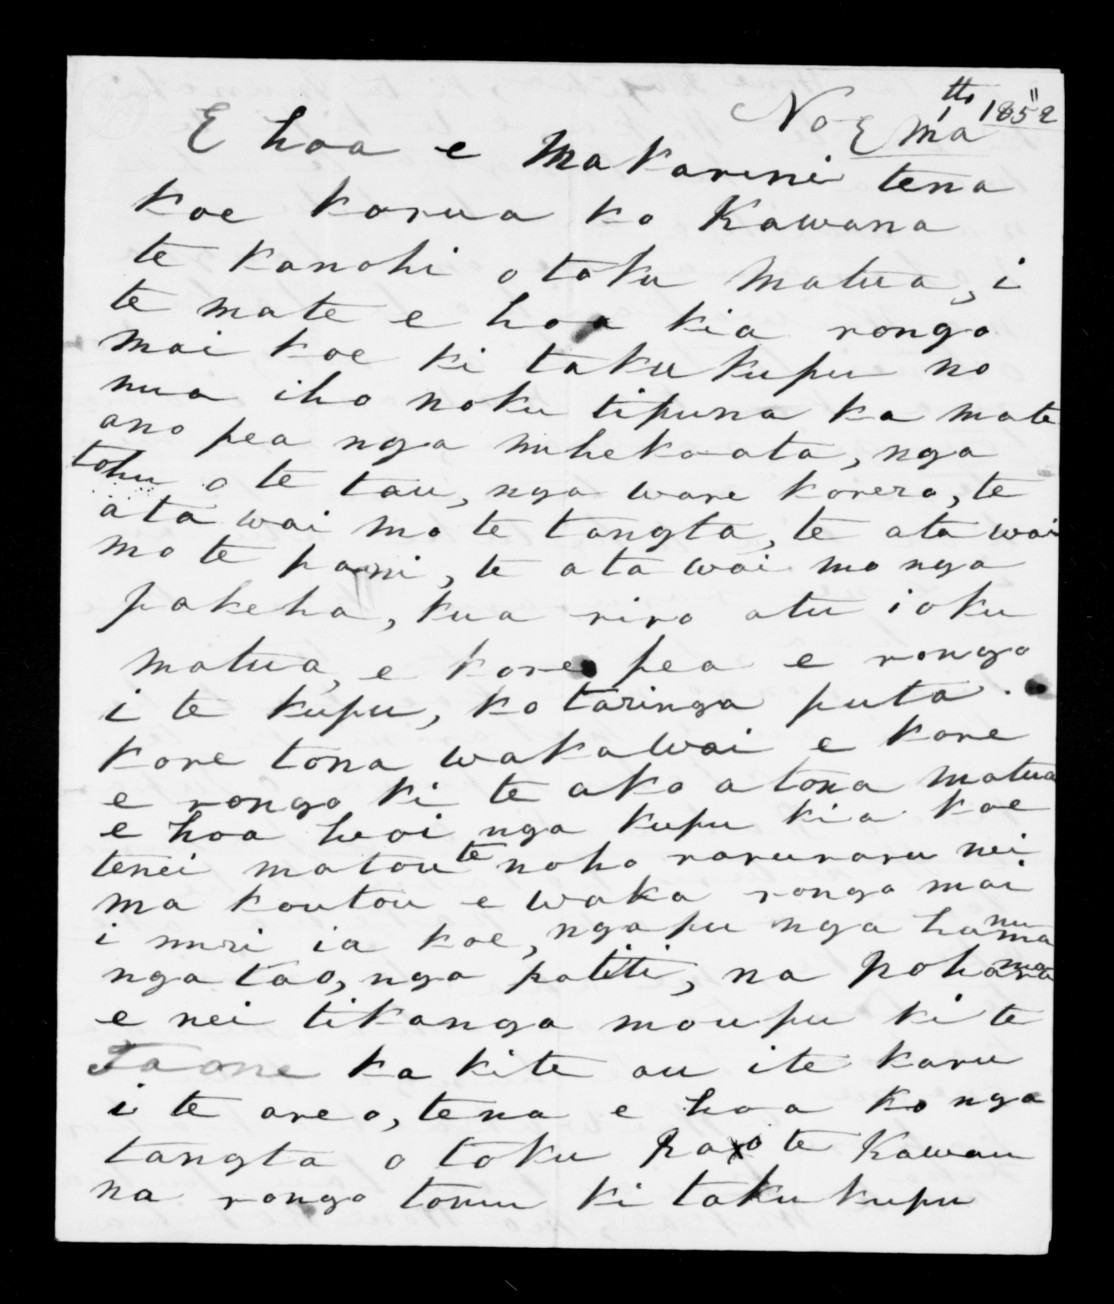 No E ma 1th 1852
E hoa e Makarini tena
koe korua ko Kawana
te kanohi otaku Matua, i
te mate e hoa kia rongo
mai koe ki taku kupu no
nua iho noku tipuna ka mate
ano pea nga mheka ata, nga
tohu o te tau, nga ware korero, te
ata wai mo te tangta, te ata wai
mo te pani, te ata wai mo nga
pakeha, kua riro atu i oku
matua, e kore pea e rongo
i te kupu, ko taringa puta
kore tona wakawai e kore
e rongo ki te ako a tona matua
e hoa hoi nga kupu kia koe
tenei matou te noho raruraru nei
ma koutou e waka rongo mai
i muri ia koe, nga pu nga hanuma
nga tao, nga patiti, na Poharama
e nei tikanga moupu ki te
Taone ka kite au ite karu
i te areo, tena e hoa ko nga
tangta o toku Pa o te Kawau
na rongo tonu ki taku kupu